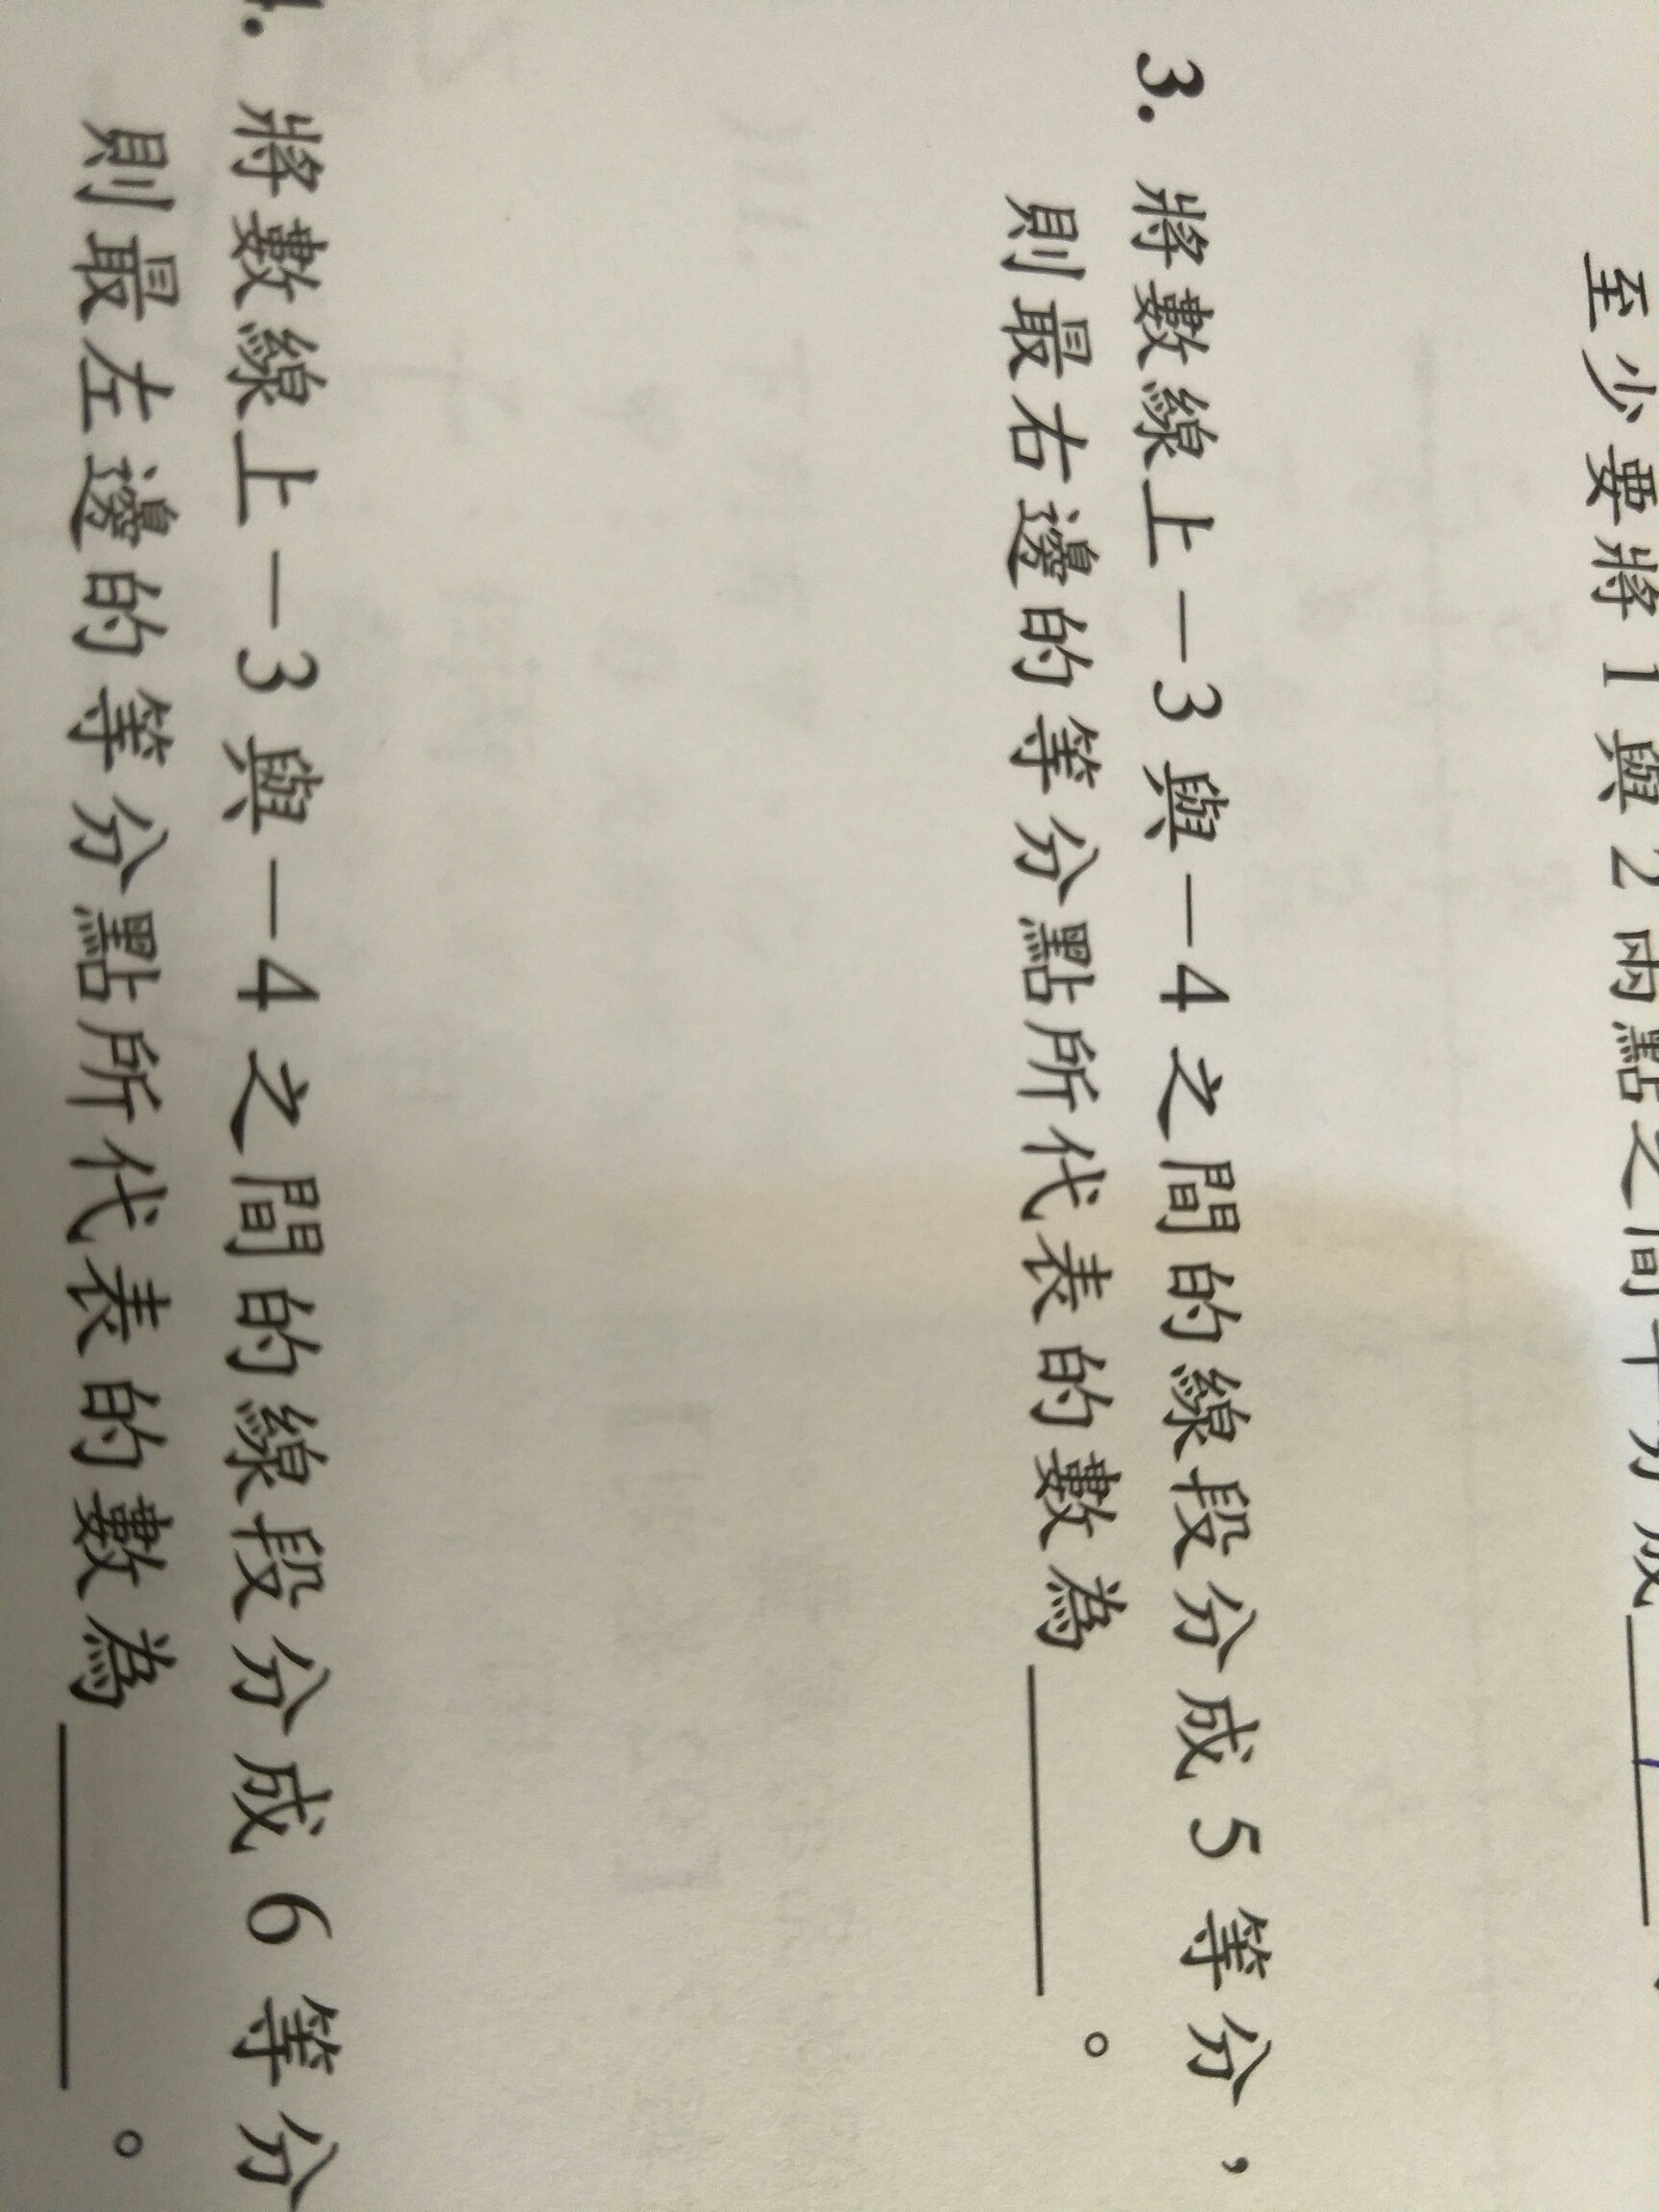 至少要將1與2兩點之間平分成
3. 將數線上－3與－4之間的線段分成5等分，
則最右邊的等分點所代表的數為＿＿＿＿。
4. 將數線上－3與－4之間的線段分成6等分
則最左邊的等分點所代表的數為＿＿＿＿。